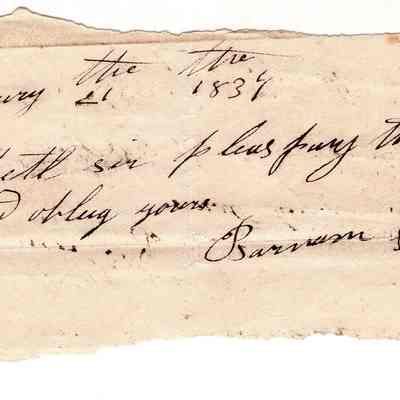 the the
ury 21 1834
sir pleas pay th
oblug yours
Barnum